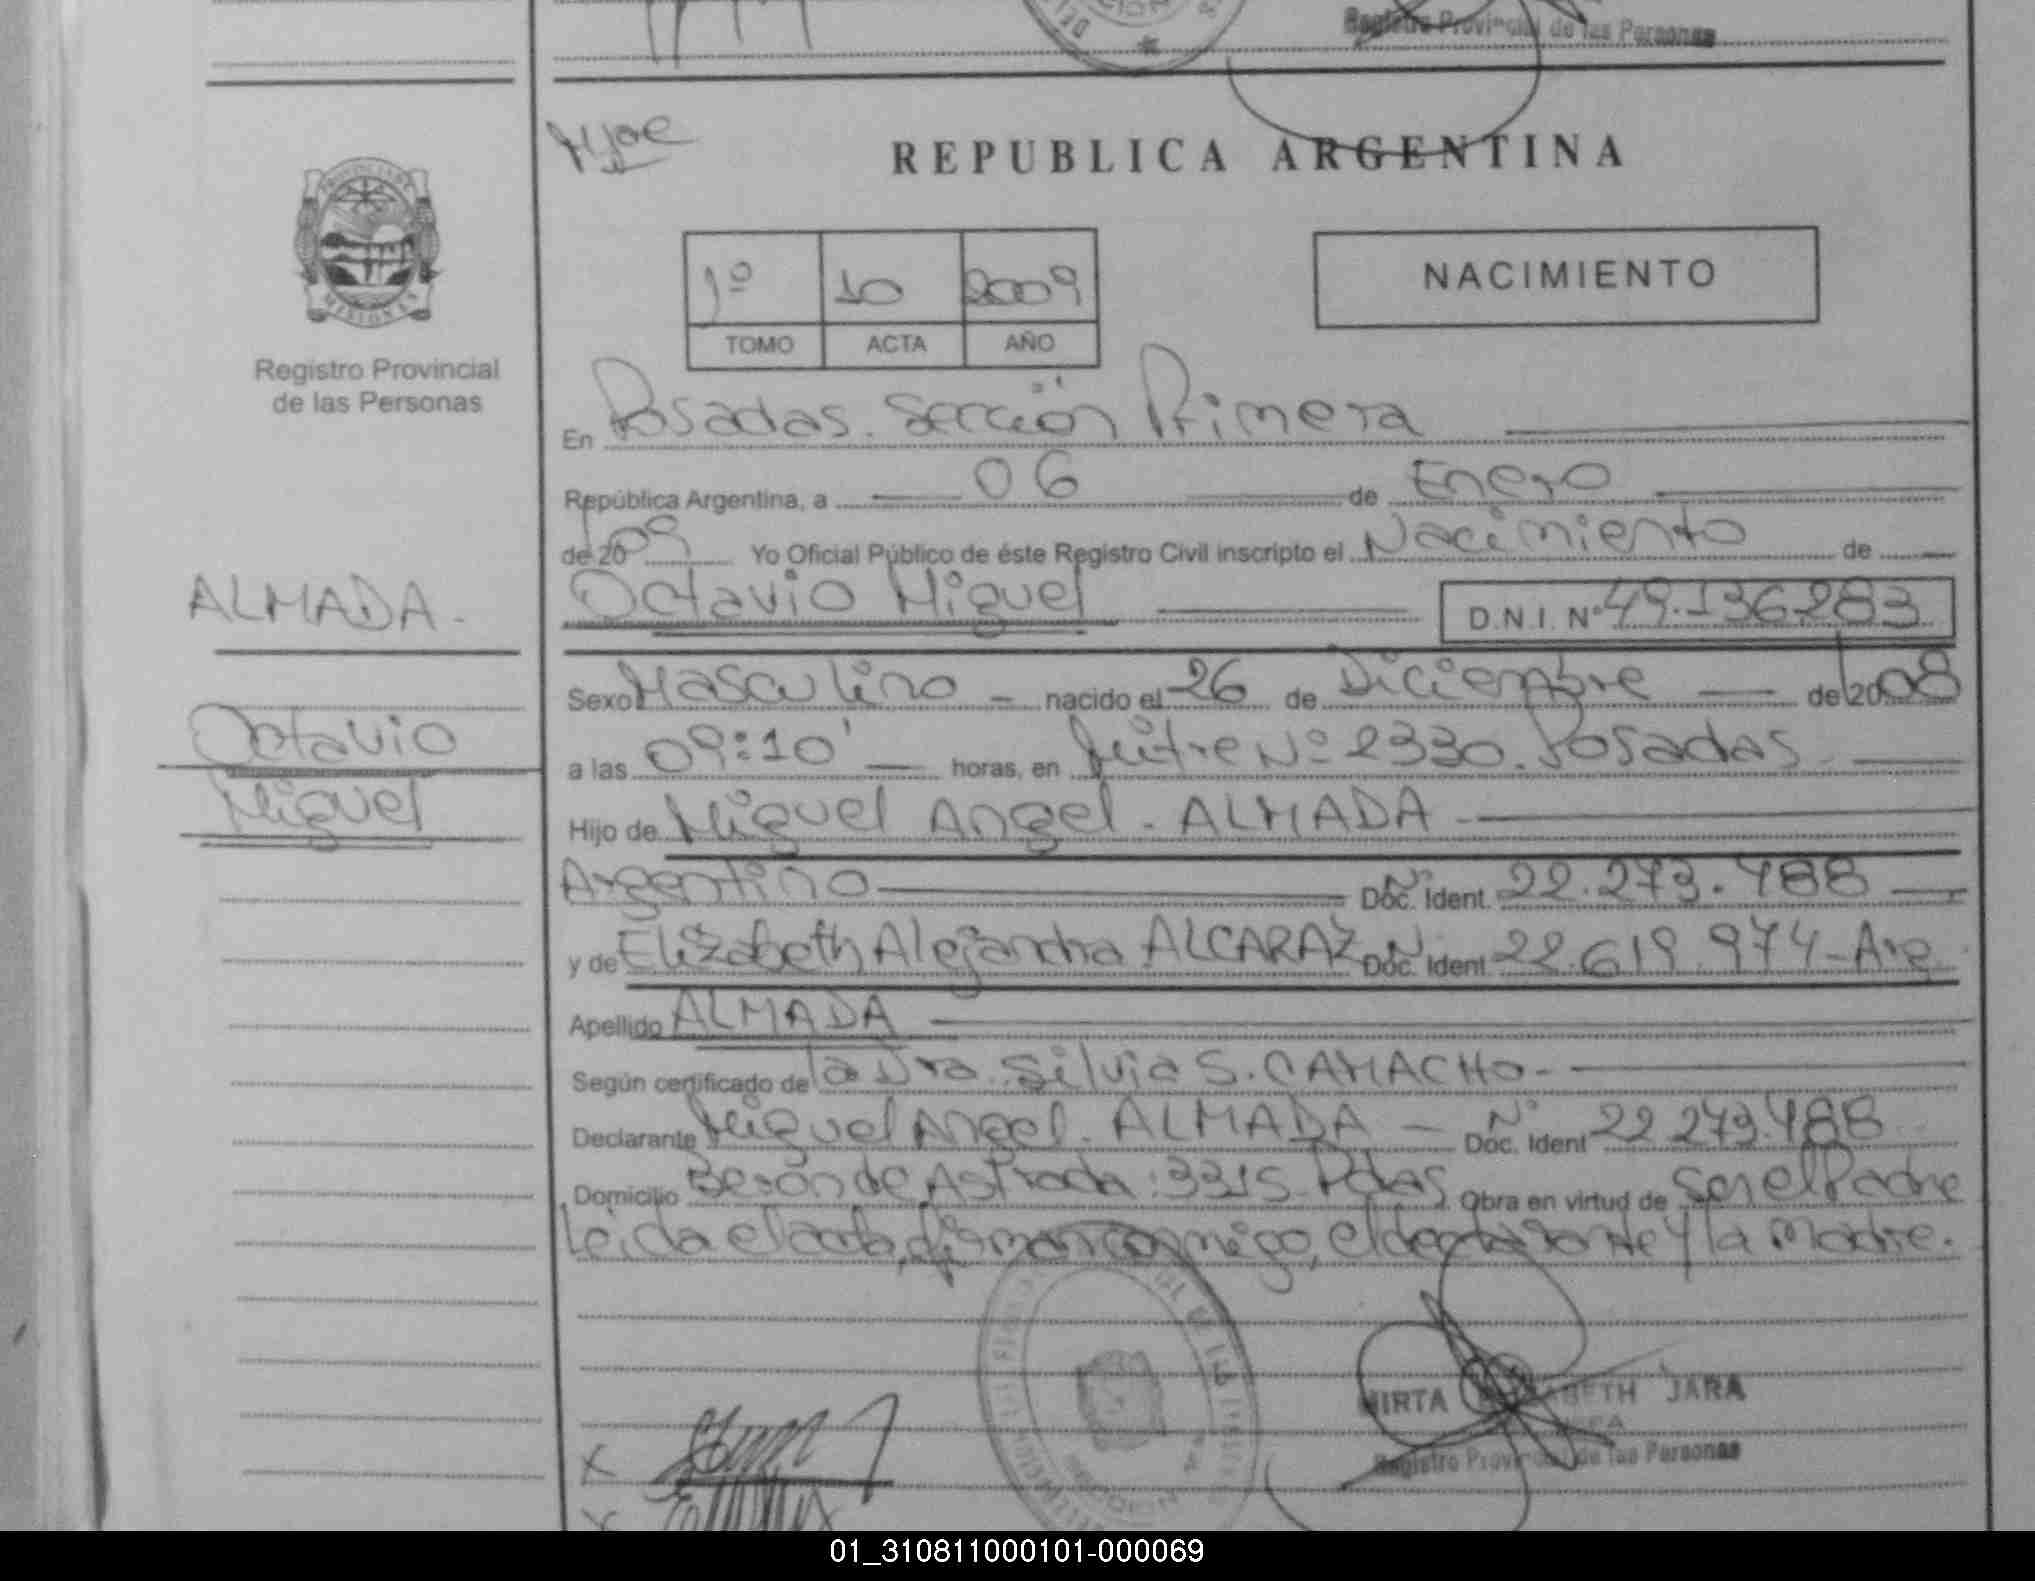 Registro Provincial de las Personas
REPUBLICA ARGENTINA
PROVINCIA DE
MISIONES
Registro Provincial
de las Personas
1º 10 2009
TOMO ACTA AÑO
NACIMIENTO
En Posadas. Sección Primera
República Argentina, a 06 de Enero
de 2009 Yo Oficial Público de éste Registro Civil inscripto el Nacimiento de
ALMADA.
Octavio Miguel D.N.I. Nº 49.136.283
Sexo Masculino - nacido el 26 de Diciembre de 2008
Octavio
Miguel
a las 09:10' horas, en Mitre Nº 2330. Posadas
Hijo de Miguel Angel. ALMADA
Argentino Nº Doc. Ident. 22.273.488
y de Elizabeth Alejandra ALCARAZ Nº Doc. Ident. 22.619.974 - Arg
Apellido ALMADA
Según certificado de la Dra. Silvia S. CAMACHO.
Declarante Miguel Angel. ALMADA - Nº Doc. Ident 22.273.488
Domicilio Berón de Astrada: 3315 Pdas. Obra en virtud de Ser el Padre
Leida el acta, firman conmigo, el declarante y la madre.
MIRTA ELIZABETH JARA
Registro Provincial de las Personas
X
X
01_310811000101-000069